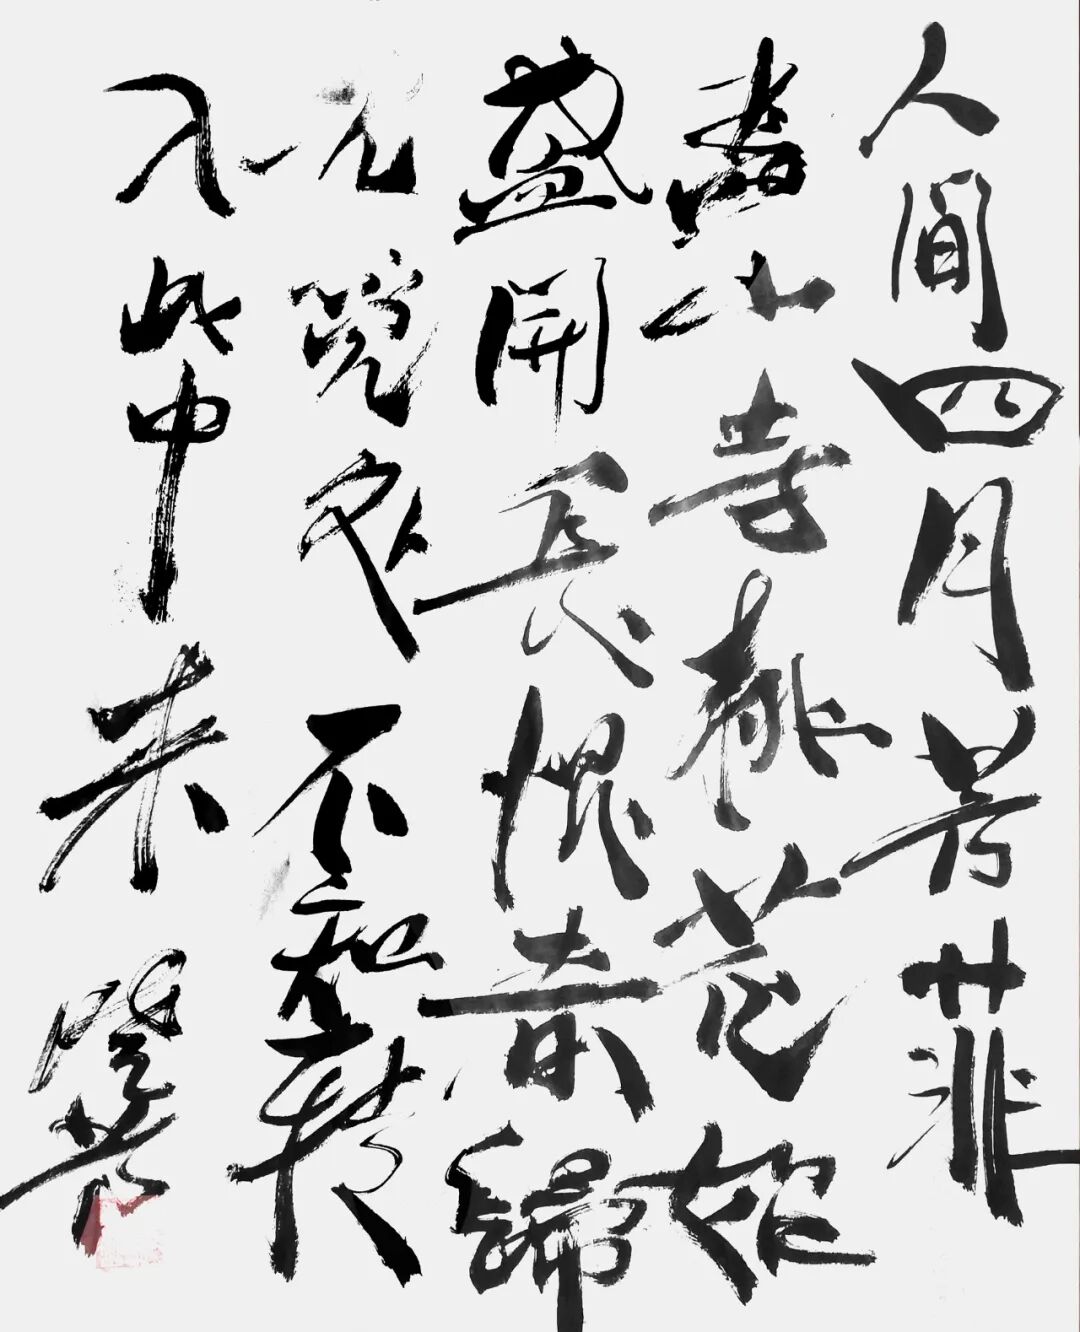 人間四月芳菲
盡山寺桃花始
盛開長恨春歸
无覓处不知轉
入此中来